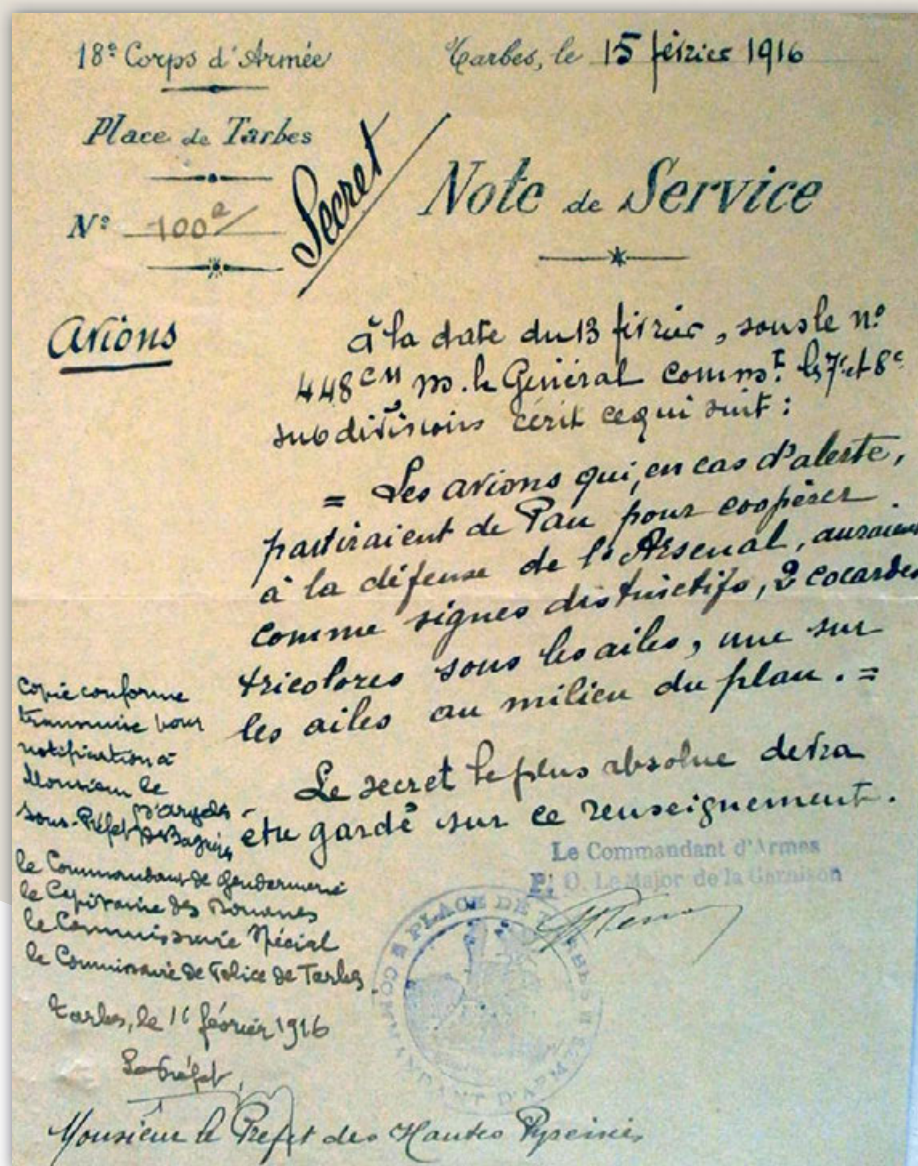 18e Corps d'Armée
Tarbes, le 15 février 1916
Place de Tarbes
Secret
Note de Service
N° 100
Avions
à la date du 13 février, sous le n°
448 CM m. le Général commt les 7e et 8e
subdivisions écrit ce qui suit :
= Les avions qui, en cas d'alerte,
partiraient de Pau pour coopérer
à la défense de l'Arsenal, auraient
comme signes distinctifs, 2 cocardes
tricolores sous les ailes, une sur
les ailes au milieu du plan. =
Le secret le plus absolue devra
être gardé sur ce renseignement.
Le Commandant d'Armes
P. O. Le Major de la Garnison
PLACE DE TARBES
COMMANDANT D'ARMES
Copie conforme
transmise pour
notification à
Monsieur le
Sous-Préfet d'Argelès
de Bagnères
le Commandant de gendarmerie
le Capitaine des Douanes
le Commissaire Spécial
le Commissaire de Police de Tarbes
Tarbes, le 16 février 1916
Le Préfet,
Monsieur le Préfet des Hautes Pyrénées